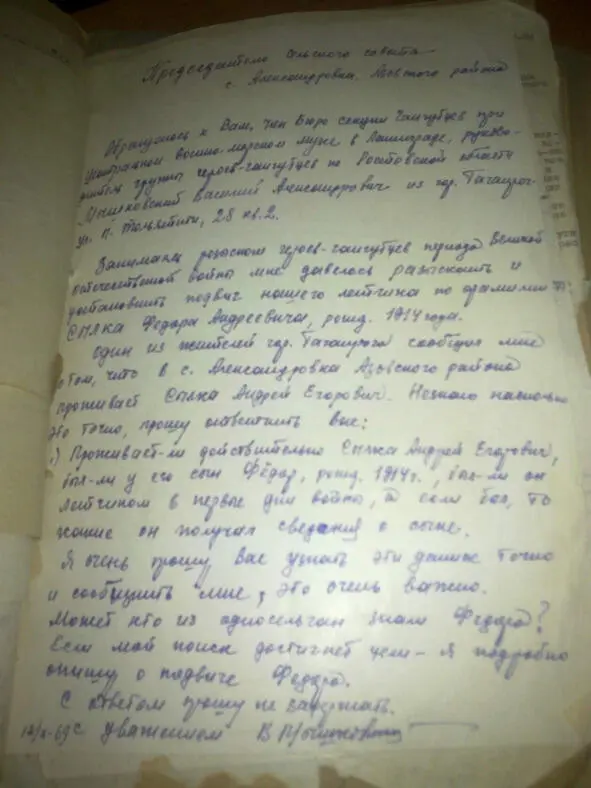 Председателю сельского совета
с. Александровка, Азовского района
Обращаюсь к Вам, член Бюро секции Гангутцев при
Центральном военно-морском музее в Ленинграде, руково-
дитель группы героев-гангутцев по Ростовской области
Мышковский Василий Александрович из гор. Таганрог
ул. П. Тольятти, 28 кв. 2.
Занимаясь розыском героев-гангутцев периода Великой
отечественной войны мне давелось разыскать и
установить подвиг нашего лётчика по фамилии
Сылка Федора Андреевича, рожд. 1914 года.
Один из жителей гор. Таганрога сообщил мне
о том, что в с. Александровка Азовского района
проживает Сылка Андрей Егорович. Незнаю насколько
это точно, прошу ответить вас:
1) Проживает-ли действительно Сылка Андрей Егорович,
был-ли у его сын Фёдор, рожд. 1914 г., был-ли он
лётчиком в первые дни войны, а если был, то
какие он получал сведения о сыне.
Я очень прошу Вас узнать эти данные точно
и сообщить мне, это очень важно.
Может кто из односельчан знали Федора?
Если мой поиск достигнет цели - я подробно
опишу о подвиге Федора.
С ответом прошу не задержать.
С уважением В Мышковский